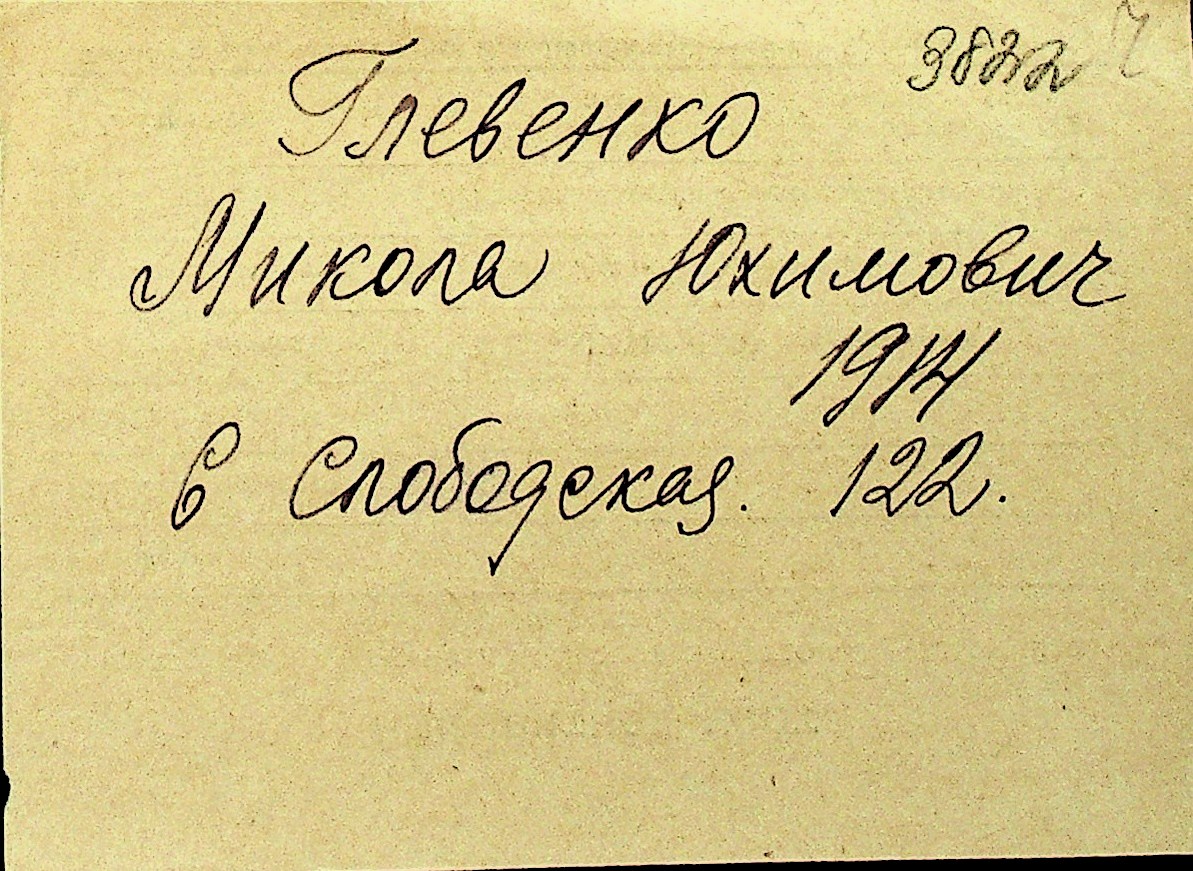 3822
Глевенко
Микола Юхимович
1914
в Слободская. 122.